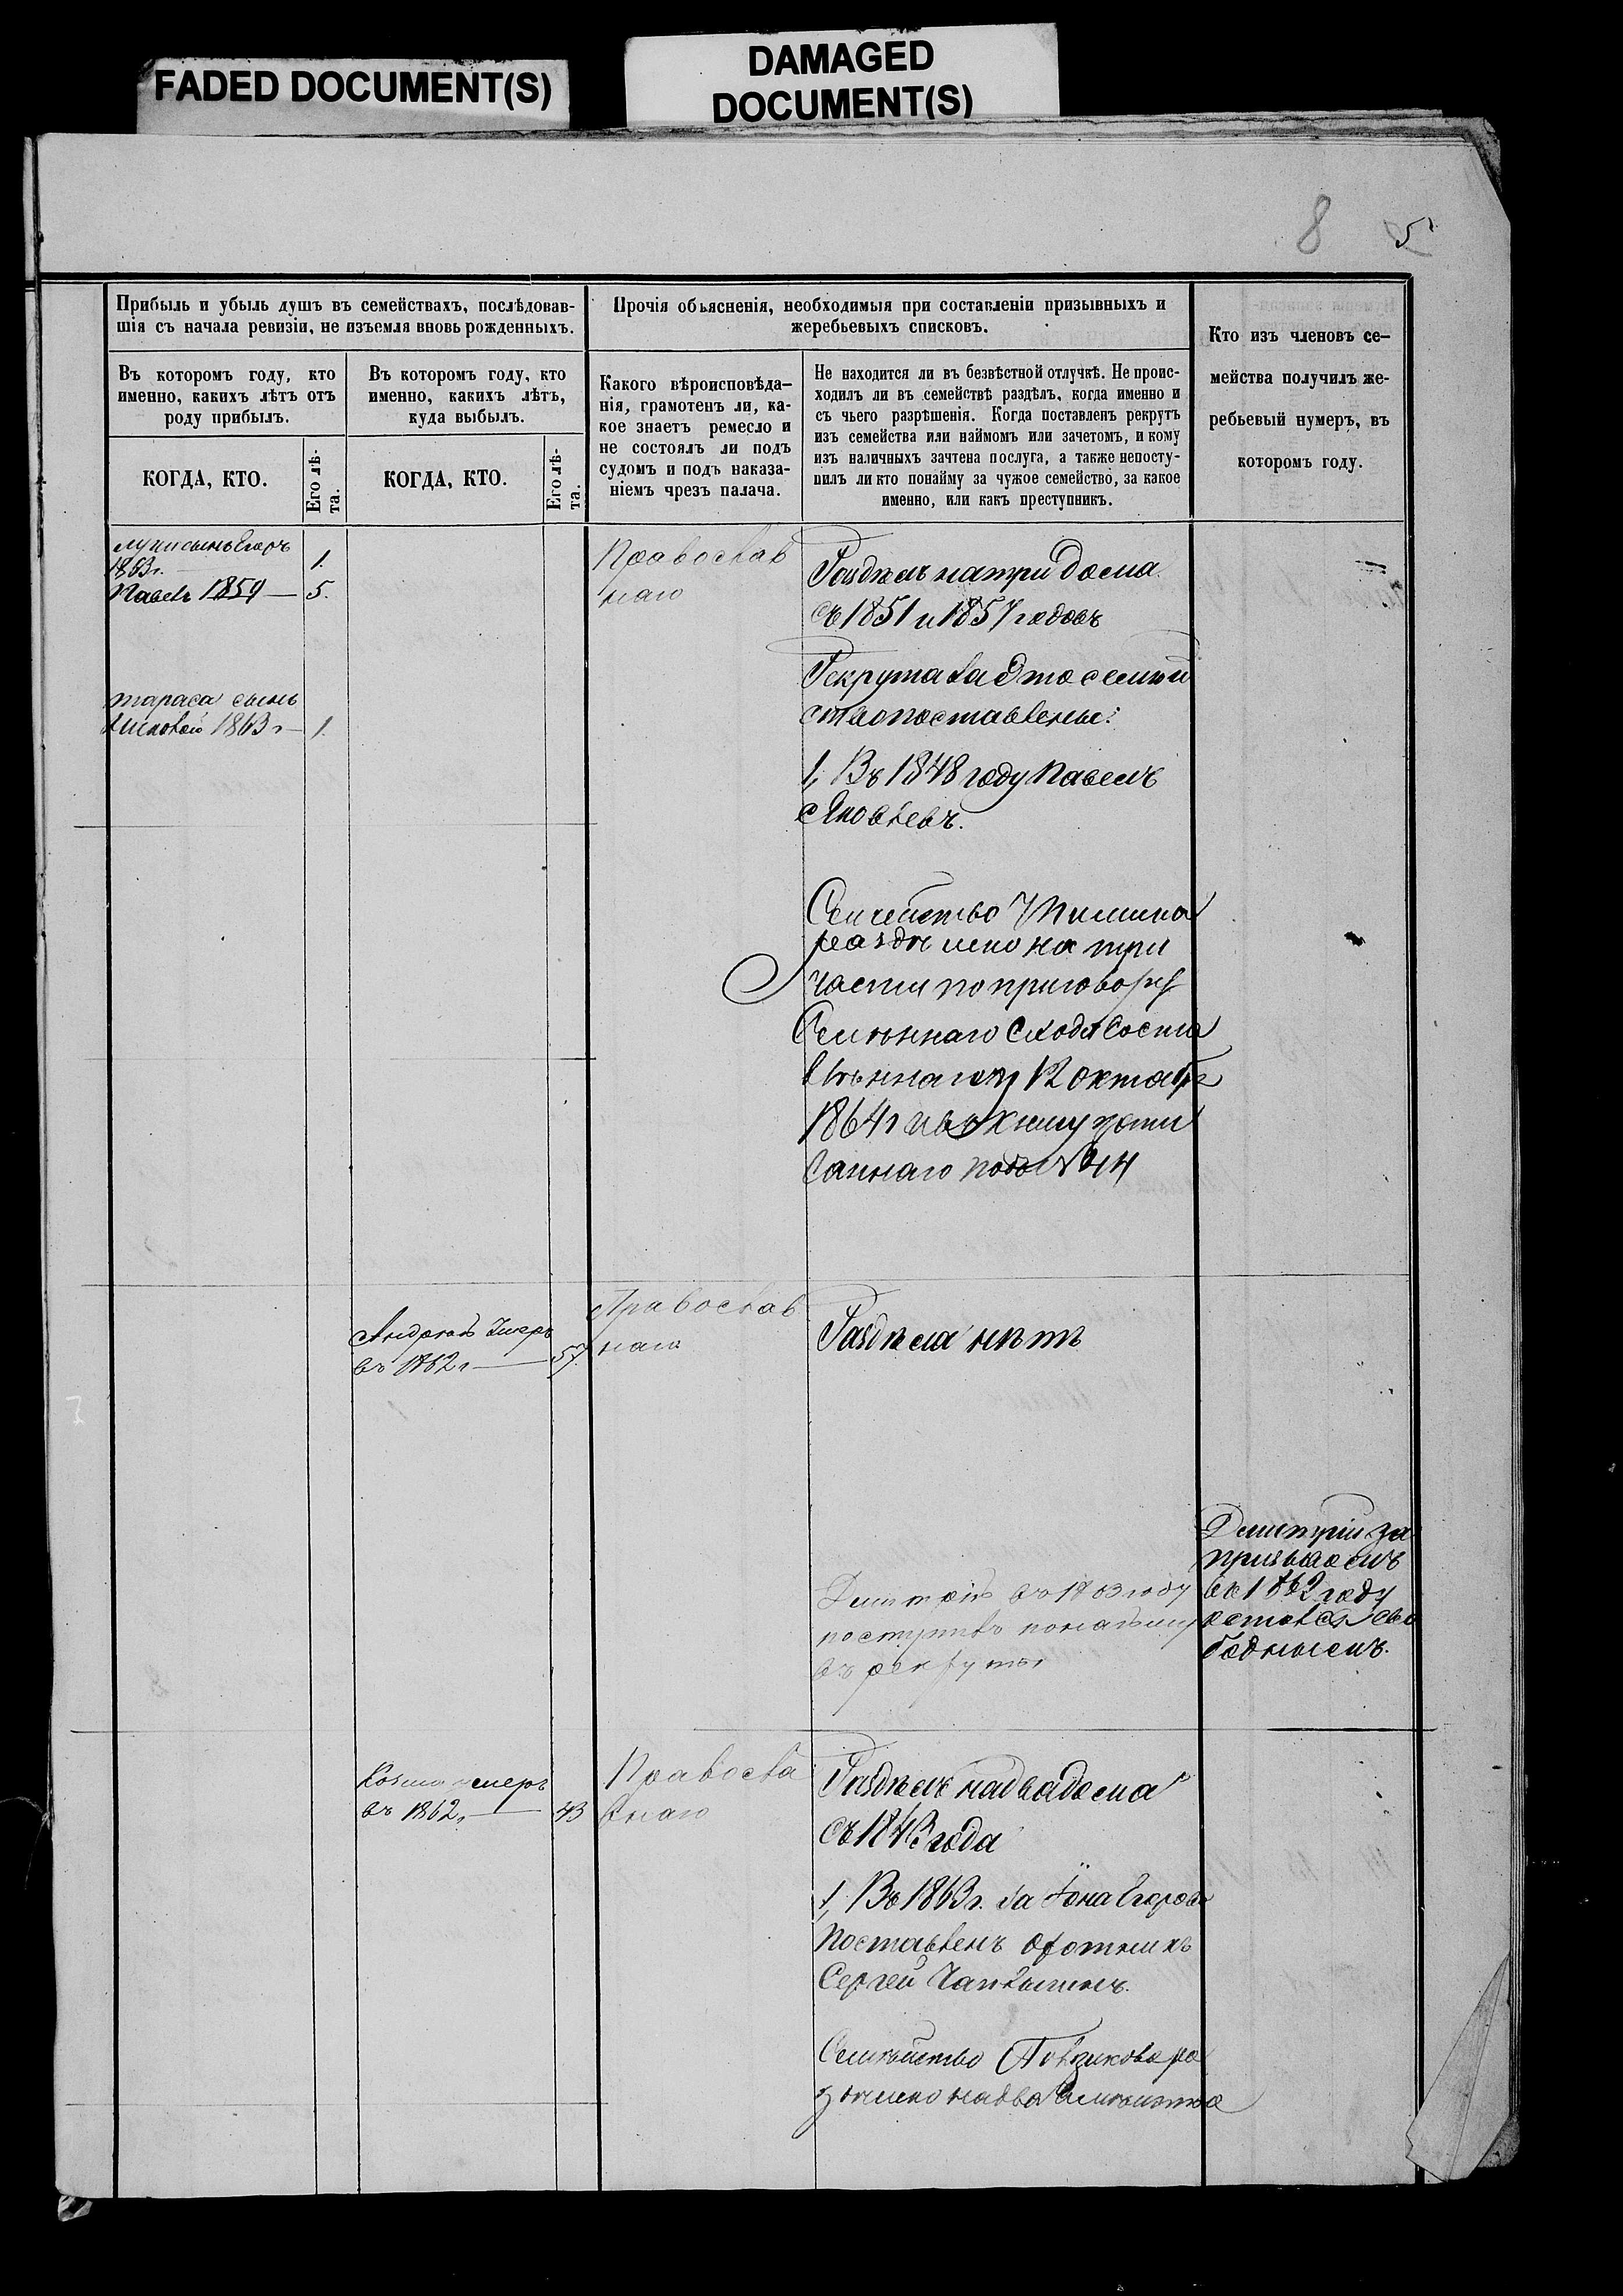 FADED DOCUMENT(S)
DAMAGED
DOCUMENT(S)
8 5
Прибыль и убыль душъ въ семействахъ, послѣдовав-
шія съ начала ревизіи, не изъемля вновь рожденныхъ.
Прочія объясненія, необходимыя при составленіи призывныхъ и
жеребьевыхъ списковъ.
Кто изъ членовъ се-
мейства получилъ же-
ребьевый нумеръ, въ
которомъ году.
Въ которомъ году, кто
именно, какихъ лѣтъ отъ
роду прибылъ.
Въ которомъ году, кто
именно, какихъ лѣтъ,
куда выбылъ.
Какого вѣроисповѣда-
нія, грамотенъ ли, ка-
кое знаетъ ремесло и
не состоялъ ли подъ
судомъ и подъ наказа-
ніемъ чрезъ палача.
Не находится ли въ безвѣстной отлучкѣ. Не проис-
ходилъ ли въ семействѣ раздѣлъ, когда именно и
съ чьего разрѣшенія. Когда поставленъ рекрутъ
изъ семейства или наймомъ или зачетомъ, и кому
изъ наличныхъ зачтена послуга, а также непосту-
пилъ ли кто понайму за чужое семейство, за какое
именно, или какъ преступникъ.
КОГДА, КТО.
Его лѣ-
та.
КОГДА, КТО.
Его лѣ-
та.
сынъ Егоръ
1863г. 1.
Павелъ 1859 — 5.
тараса сынъ
1863 г — 1.
Православ
наго
Раздѣлъ на три дома
съ 1851 и 1857 годовъ
Рекрута за это семей
ство поставлены:
1, Въ 1848 году Павелъ
Яковлевъ.
Семейство
раздѣлено на три
части по приговору
Схода соста
вленнаго 12 октабр
1864 г и въ книгу запи
саннаго подъ №
Андрей Умеръ
въ 1862 г — 57.
Православ
наго
Раздѣла нѣтъ
Дмитрій въ 1863 году
поступилъ понайму
въ рекруты
Дмитрій за
призывомъ
въ 1863 году
остался сво
боднымъ.
Козма умеръ
въ 1862 г — 43
Правосла
внаго
Раздѣлъ на два дома
съ 1843 года
1, Въ 1863 г. за Іона Егорова
Поставленъ Охотникъ
Сергей
Семейство ра
здѣлено на два семейства